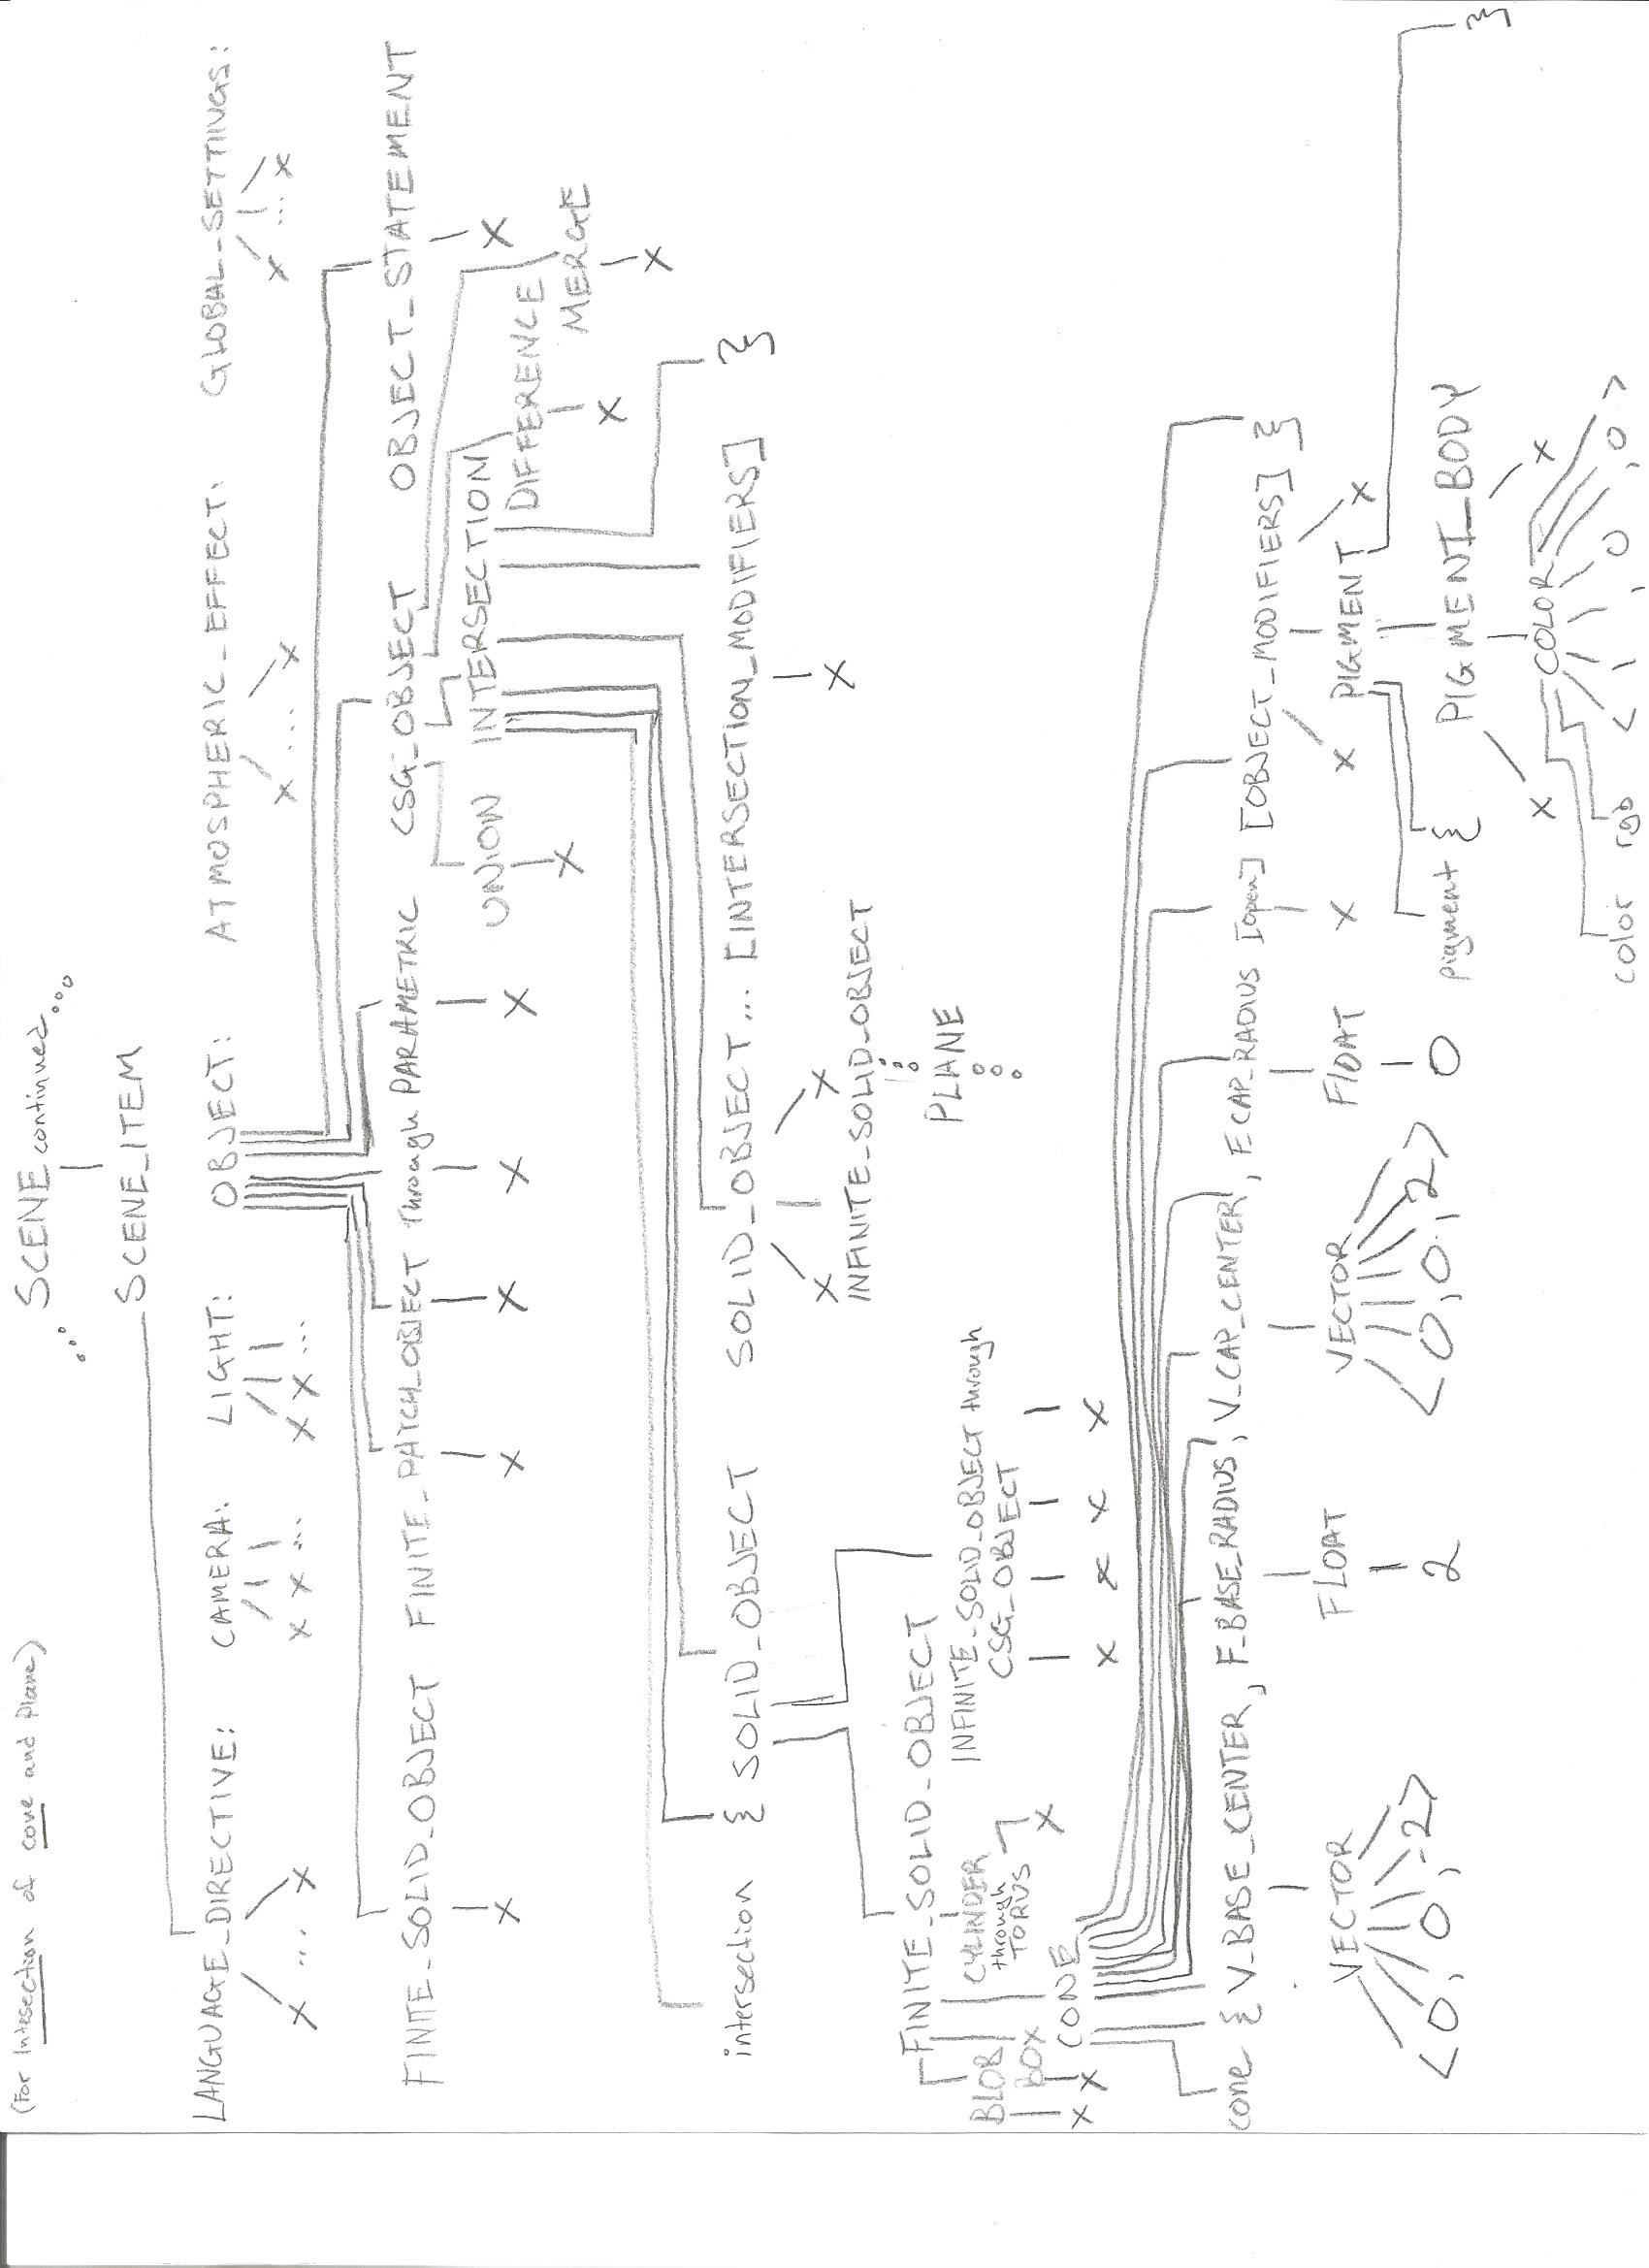 (For Intesection of cone and Plane)
SCENE continued...
SCENE_ITEM
LANGUAGE_DIRECTIVE: CAMERA: LIGHT: OBJECT: ATMOSPHERIC_EFFECT: GLOBAL_SETTINGS:
X ... X X X ... X X ... X ... X X ... X
FINITE_SOLID_OBJECT FINITE_PATCH_OBJECT Through PARAMETRIC CSG_OBJECT OBJECT_STATEMENT
X X X X X X
UNION INTERSECTION DIFFERENCE MERGE
X X X
intersection { SOLID_OBJECT SOLID_OBJECT... [INTERSECTION_MODIFIERS] }
X X X
INFINITE_SOLID_OBJECT
PLANE
FINITE_SOLID_OBJECT INFINITE_SOLID_OBJECT through
CSG_OBJECT
BLOB CYLINDER
through
BOX TORUS
CONE
X X X X X X X
cone { V_BASE_CENTER, F_BASE_RADIUS, V_CAP_CENTER, F_CAP_RADIUS [open] [OBJECT_MODIFIERS] }
VECTOR FLOAT VECTOR FLOAT X X PIGMENT X
<0, 0, -2> 2 <0, 0, 2> 0
pigment { PIGMENT_BODY }
X COLOR X
color rgb <1, 0, 0>